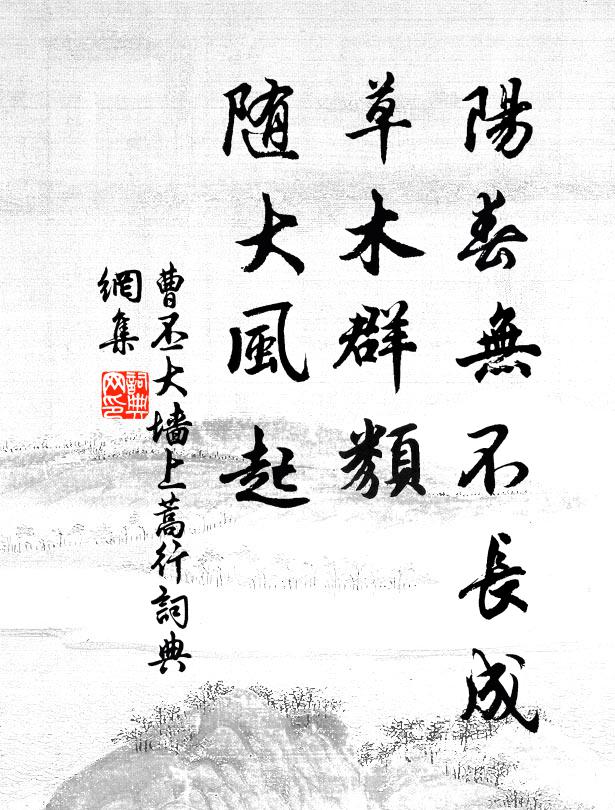 陽春無不長成
草木群類
随大風起
曹丕大墙上蒿行詞典
網集
詞典
网印